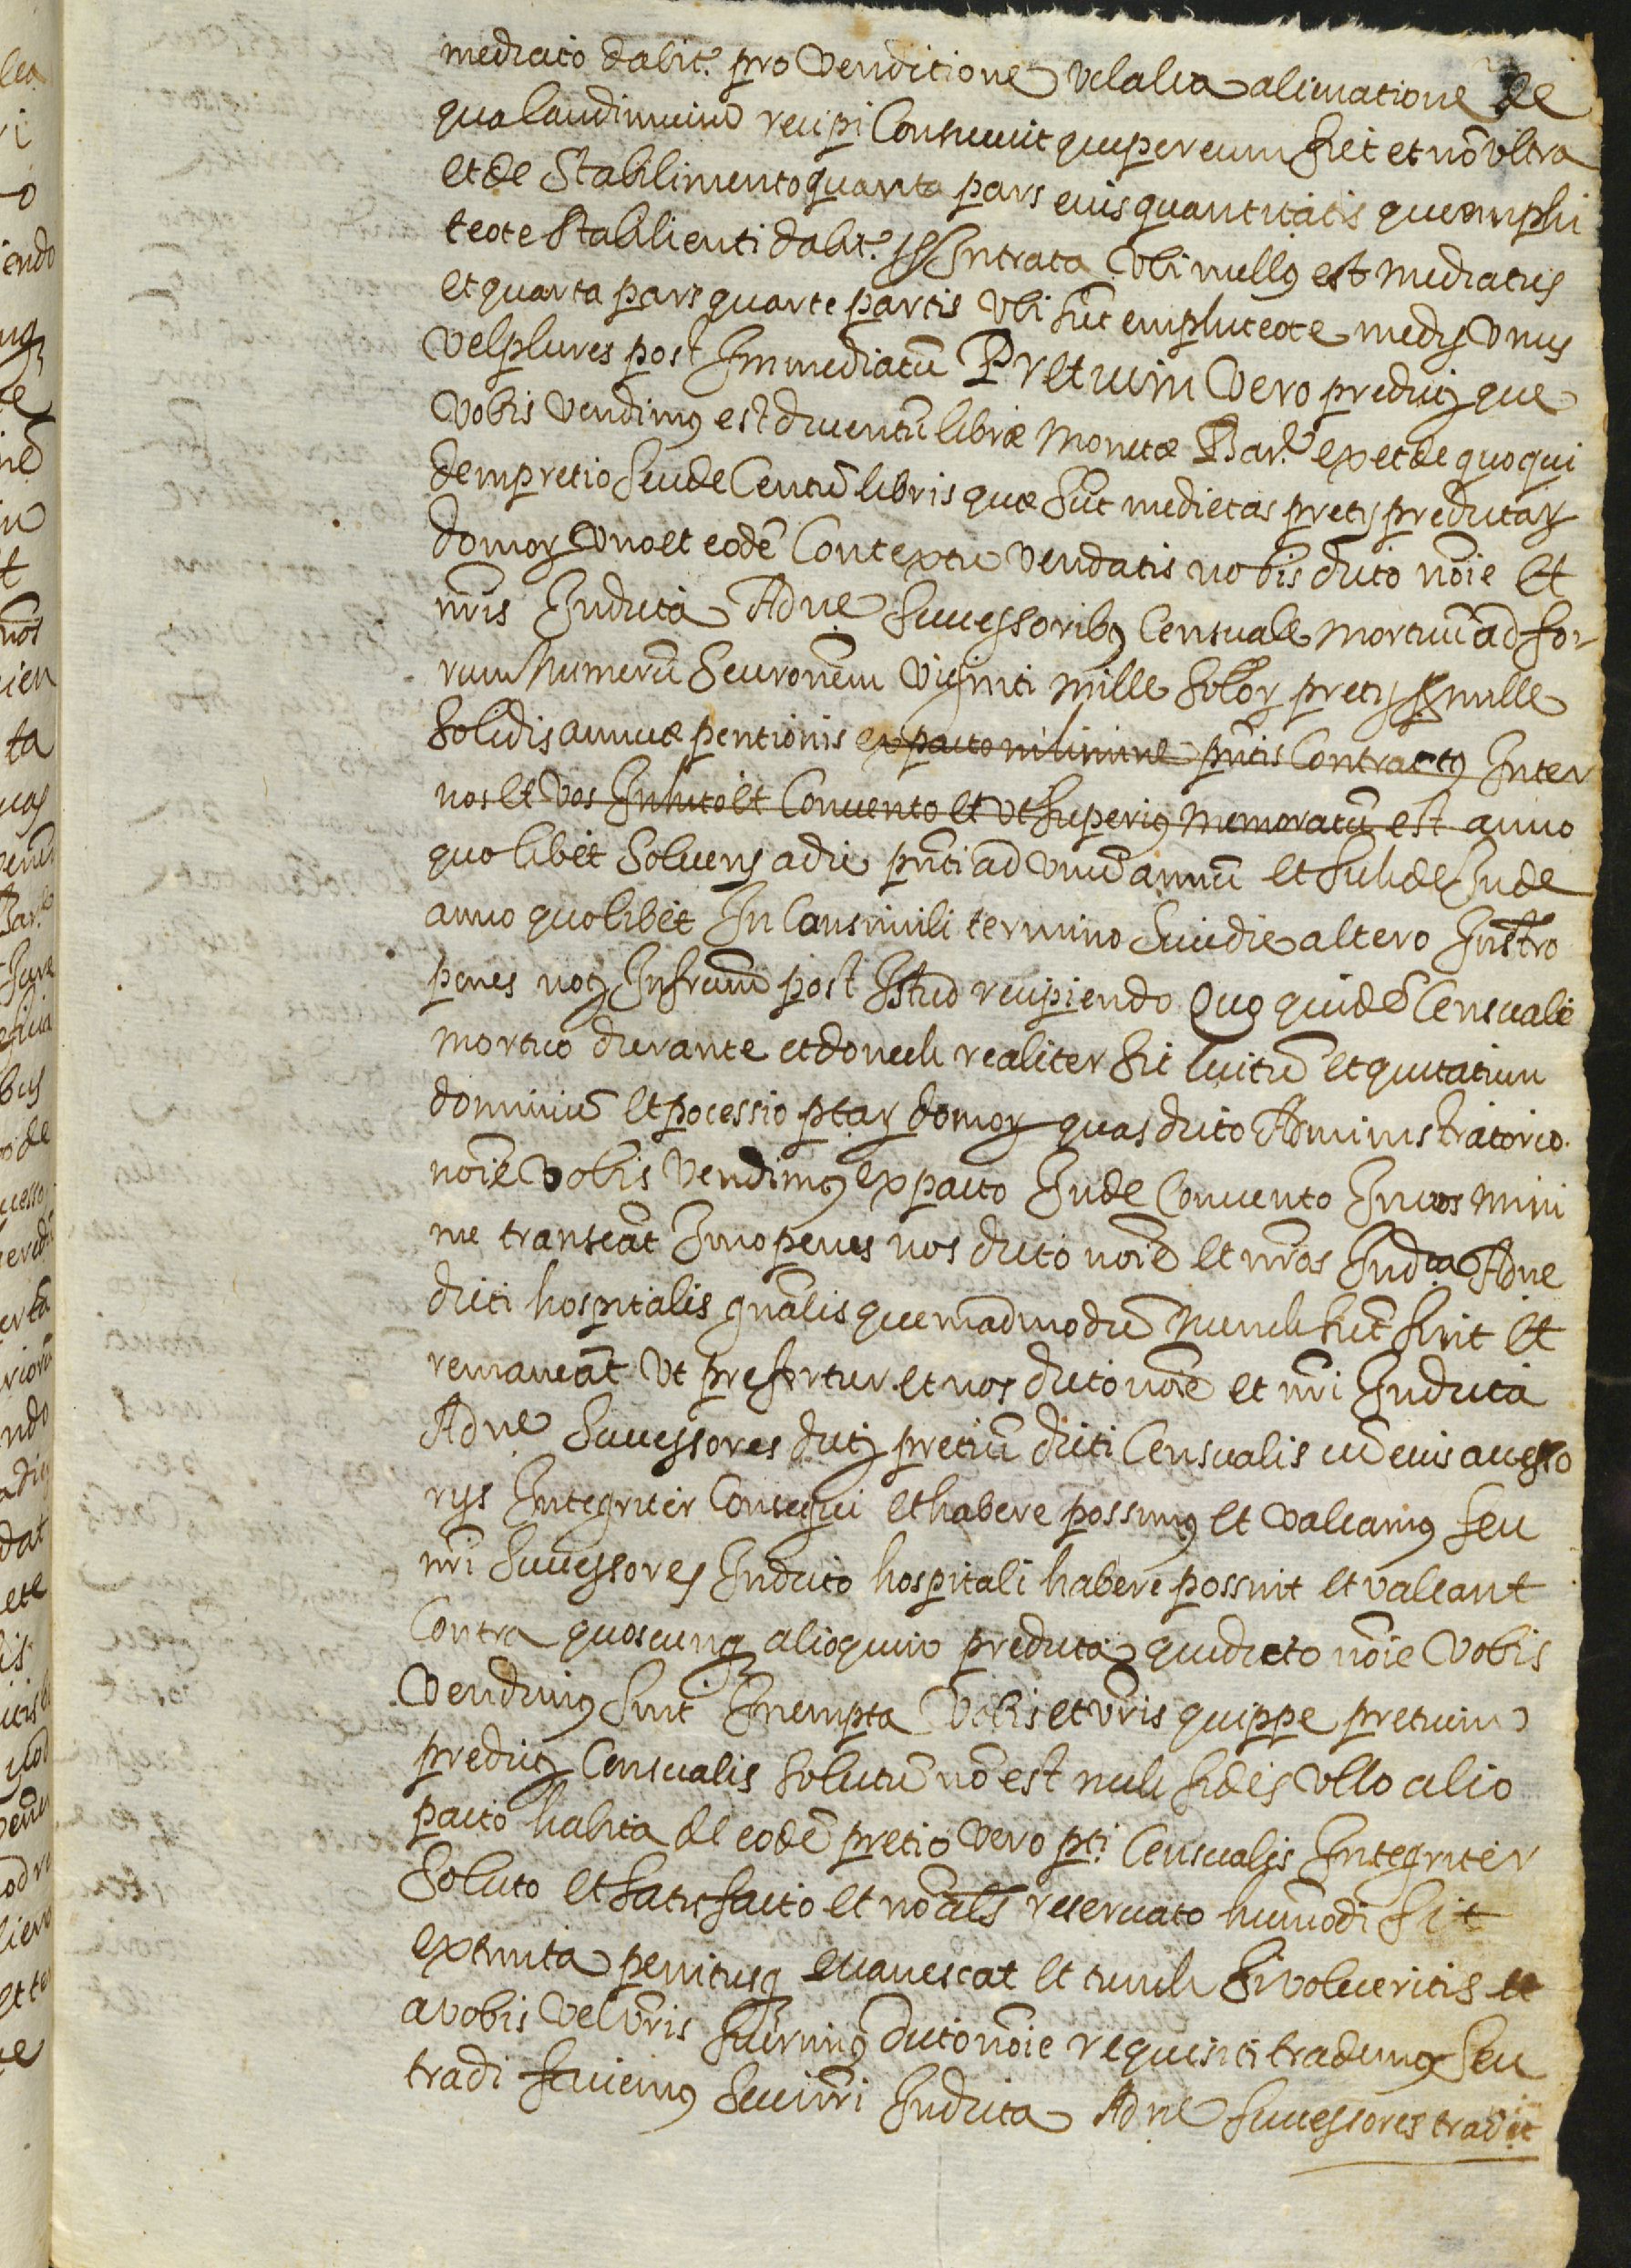 mediato dabit. pro venditione vel alia alienatione de
qua laudimium recipi Consuevit que per eum fiet et nō ultra
et de Stabilimento quarta pars eius quantitatis que emphi
teote Stabilienti dabit. Intrata Ubi nullꝰ est mediatus
et quarta pars quarte partis Ubi sūt emphiteote medij Unus
Vel plures post Immediatū Pretium Vero predictꝝ que
Vobis Vendimꝰ est ducentū libræ Monetæ Bar.e ex et de quo qui
dem pretio Seu de Centū libris quæ sūt medietas pretij predictaꝝ
domoꝝ Uno et eodē Contextu Vendatis nobis dicto nōie et
nr̄is In dicta Adne Successoribꝰ Censuale Mortuū ad fo-
rum Numerū Seu ronem Viginti Mille Soloꝝ pretij ꝓ mille
Solidis annuæ pentionis ex pacto in limine pn̄tis Contractꝰ Inter
nos et Vos Inhito et Convento et Ut Superiꝰ Memoratū est anno
quolibet Solvenꝫ a die pn̄ti ad Unū annū et Subde Inde
anno quolibet In Consimili termino Seu die altero Instro
penes noꝫ Infrum post Istud recipiendo Quo quidē Censuale
mortuo durante et donech realiter sit luitū et quitatum
dominiū et pocessio ptaꝝ domoꝝ quas dicto Administratorio
nōie Vobis Vendimꝰ ex pacto Inde Convento In vos Mini
me transeāt Imo penes nos dicto nōie et nr̄os In dcta Adne
dicti hospitalis gn̄alis quemadmodū Nunch sūt sint et
remaneāt Ut prefertur et nos dicto nōie et nr̄i In dicta
Adne Successores dictꝫ pretiū dicti Censualis cū eius accesso
rijs Integriter Consequi et habere possimꝰ et Valeamꝰ seu
nr̄i Successores In dicto hospitali habere possint et valeant
Contra quoscunqꝫ alioquin predicta que dicto nōie Vobis
Vendimꝰ sint Inempta Vobis et vr̄is quippe pretium
predictꝫ Censualis Solutū nō est nech fides Ullo alio
pacto habita de eodē pretio Vero pti Censualis Integriter
Soluto et Satisfacto et nō als reservato huiusmodi sit
extincta penitusqꝫ evanescat et tunch Si volueritis et
a vobis Vel vr̄is fuerimꝰ dicto nōie requisiti trademꝰ Seu
tradi faciemꝰ Seu nr̄i In dicta Adne Successores tradēt